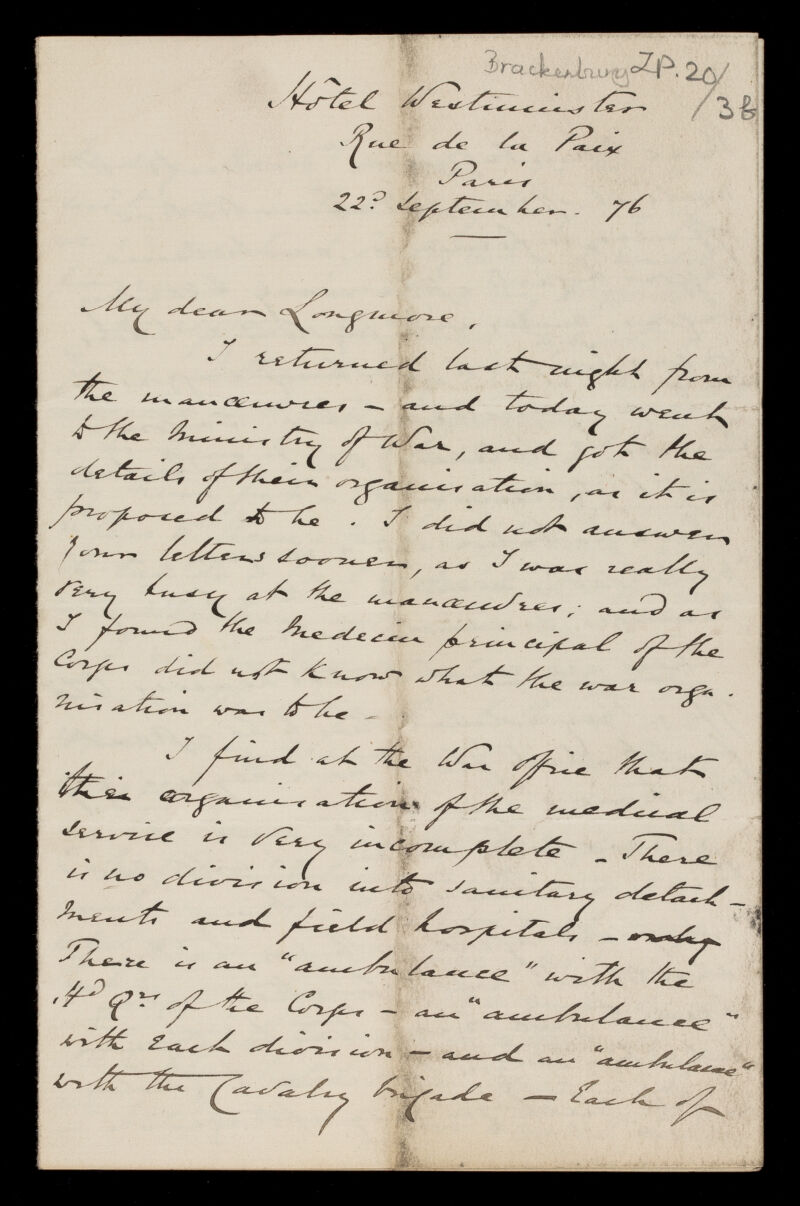 Brackenbury LP. 20/38
Hôtel Westminster
Rue de la Paix
Paris
22d September. 76
My dear Longmore,
I returned last night from
the manœuvres – and today went
to the Ministry of War, and got the
details of their organisation, as it is
proposed to be. I did not answer
your letters sooner, as I was really
very busy at the manœuvres; and as
I found the Medecin principal of the
Corps did not know what the war orga-
nisation was to be –
I find at the War office that
their organisation of the medical
service is very incomplete – There
is no division into sanitary detach-
ments and field hospitals – only
There is an "ambulance" with the
Hd Qrs of the Corps – an "ambulance"
with each division – and an "ambulance"
with the Cavalry brigade – Each of